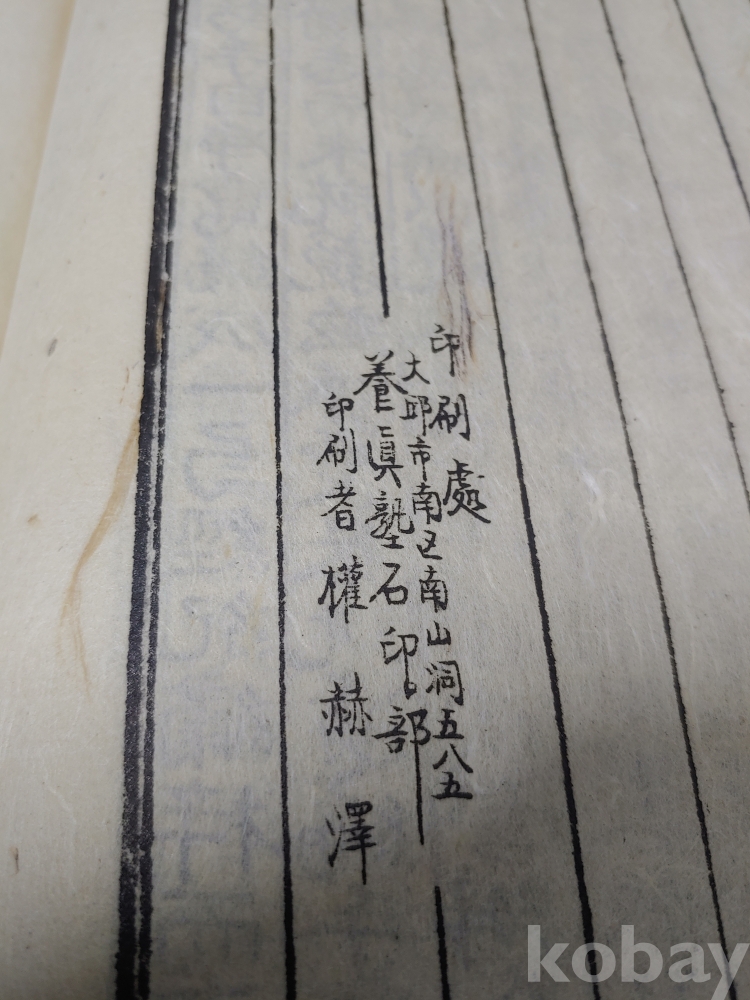 印刷處
大邱市南区南山洞五八五
養眞塾石印部
印刷者 權赫澤
kobay